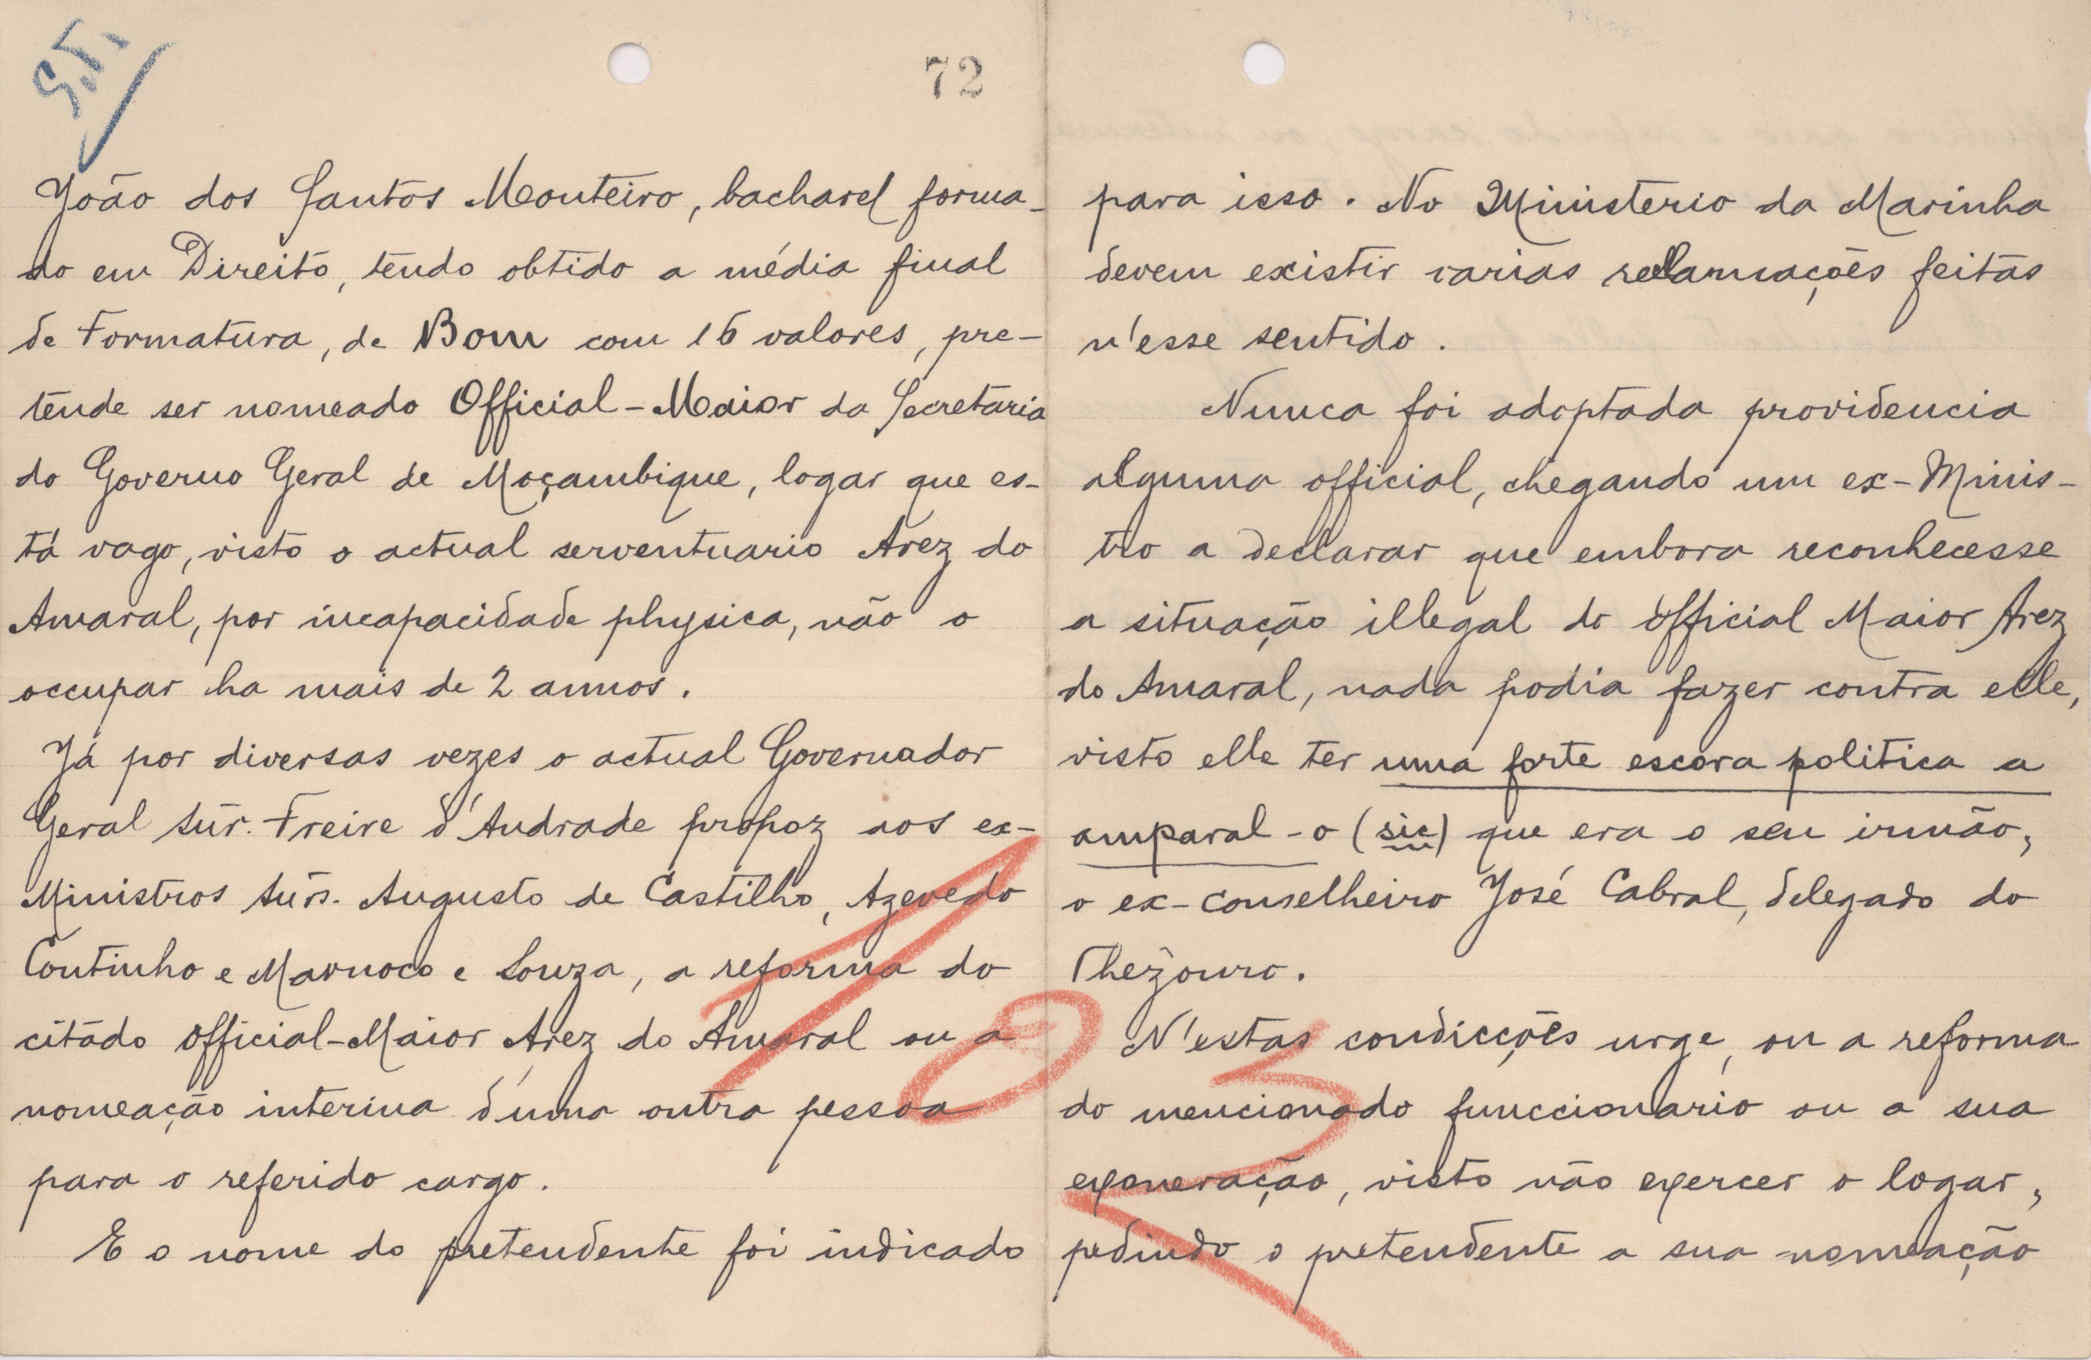 S.T.
72
João dos Santos Monteiro, bacharel forma-
do em Direito, tendo obtido a média final
de Formatura, de Bom com 16 valores, pre-
tende ser nomeado Official-Maior da Secretaria
do Governo Geral de Moçambique, logar que es-
tá vago, visto o actual serventuario Arez do
Amaral, por incapacidade physica, não o
occupar ha mais de 2 annos.
Já por diversas vezes o actual Governador
Geral Snr. Freire d'Andrade propoz aos ex-
Ministros Snrs. Augusto de Castilho, Azevedo
Coutinho e Marnoco e Souza, a reforma do
citado Official-Maior Arez do Amaral ou a
nomeação interina d'uma outra pessoa
para o referido cargo.
E o nome do pretendente foi indicado
para isso. No Ministerio da Marinha
devem existir varias reclamações feitas
n'esse sentido.
Nunca foi adoptada providencia
alguma official, chegando um ex-Minis-
tro a declarar que embora reconhecesse
a situação illegal do Official Maior Arez
do Amaral, nada podia fazer contra elle,
visto elle ter uma forte escora politica a
amparal-o (sic) que era o seu irmão,
o ex-conselheiro José Cabral, delegado do
Thezouro.
N'estas condicções urge, ou a reforma
do mencionado funccionario ou a sua
exoneração, visto não exercer o logar,
pedindo o pretendente a sua nomeação